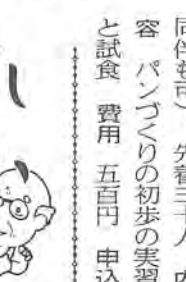 同伴も可） 先着三十人 内
容 パンづくりの初歩の実習
と試食 費用 五百円 申込